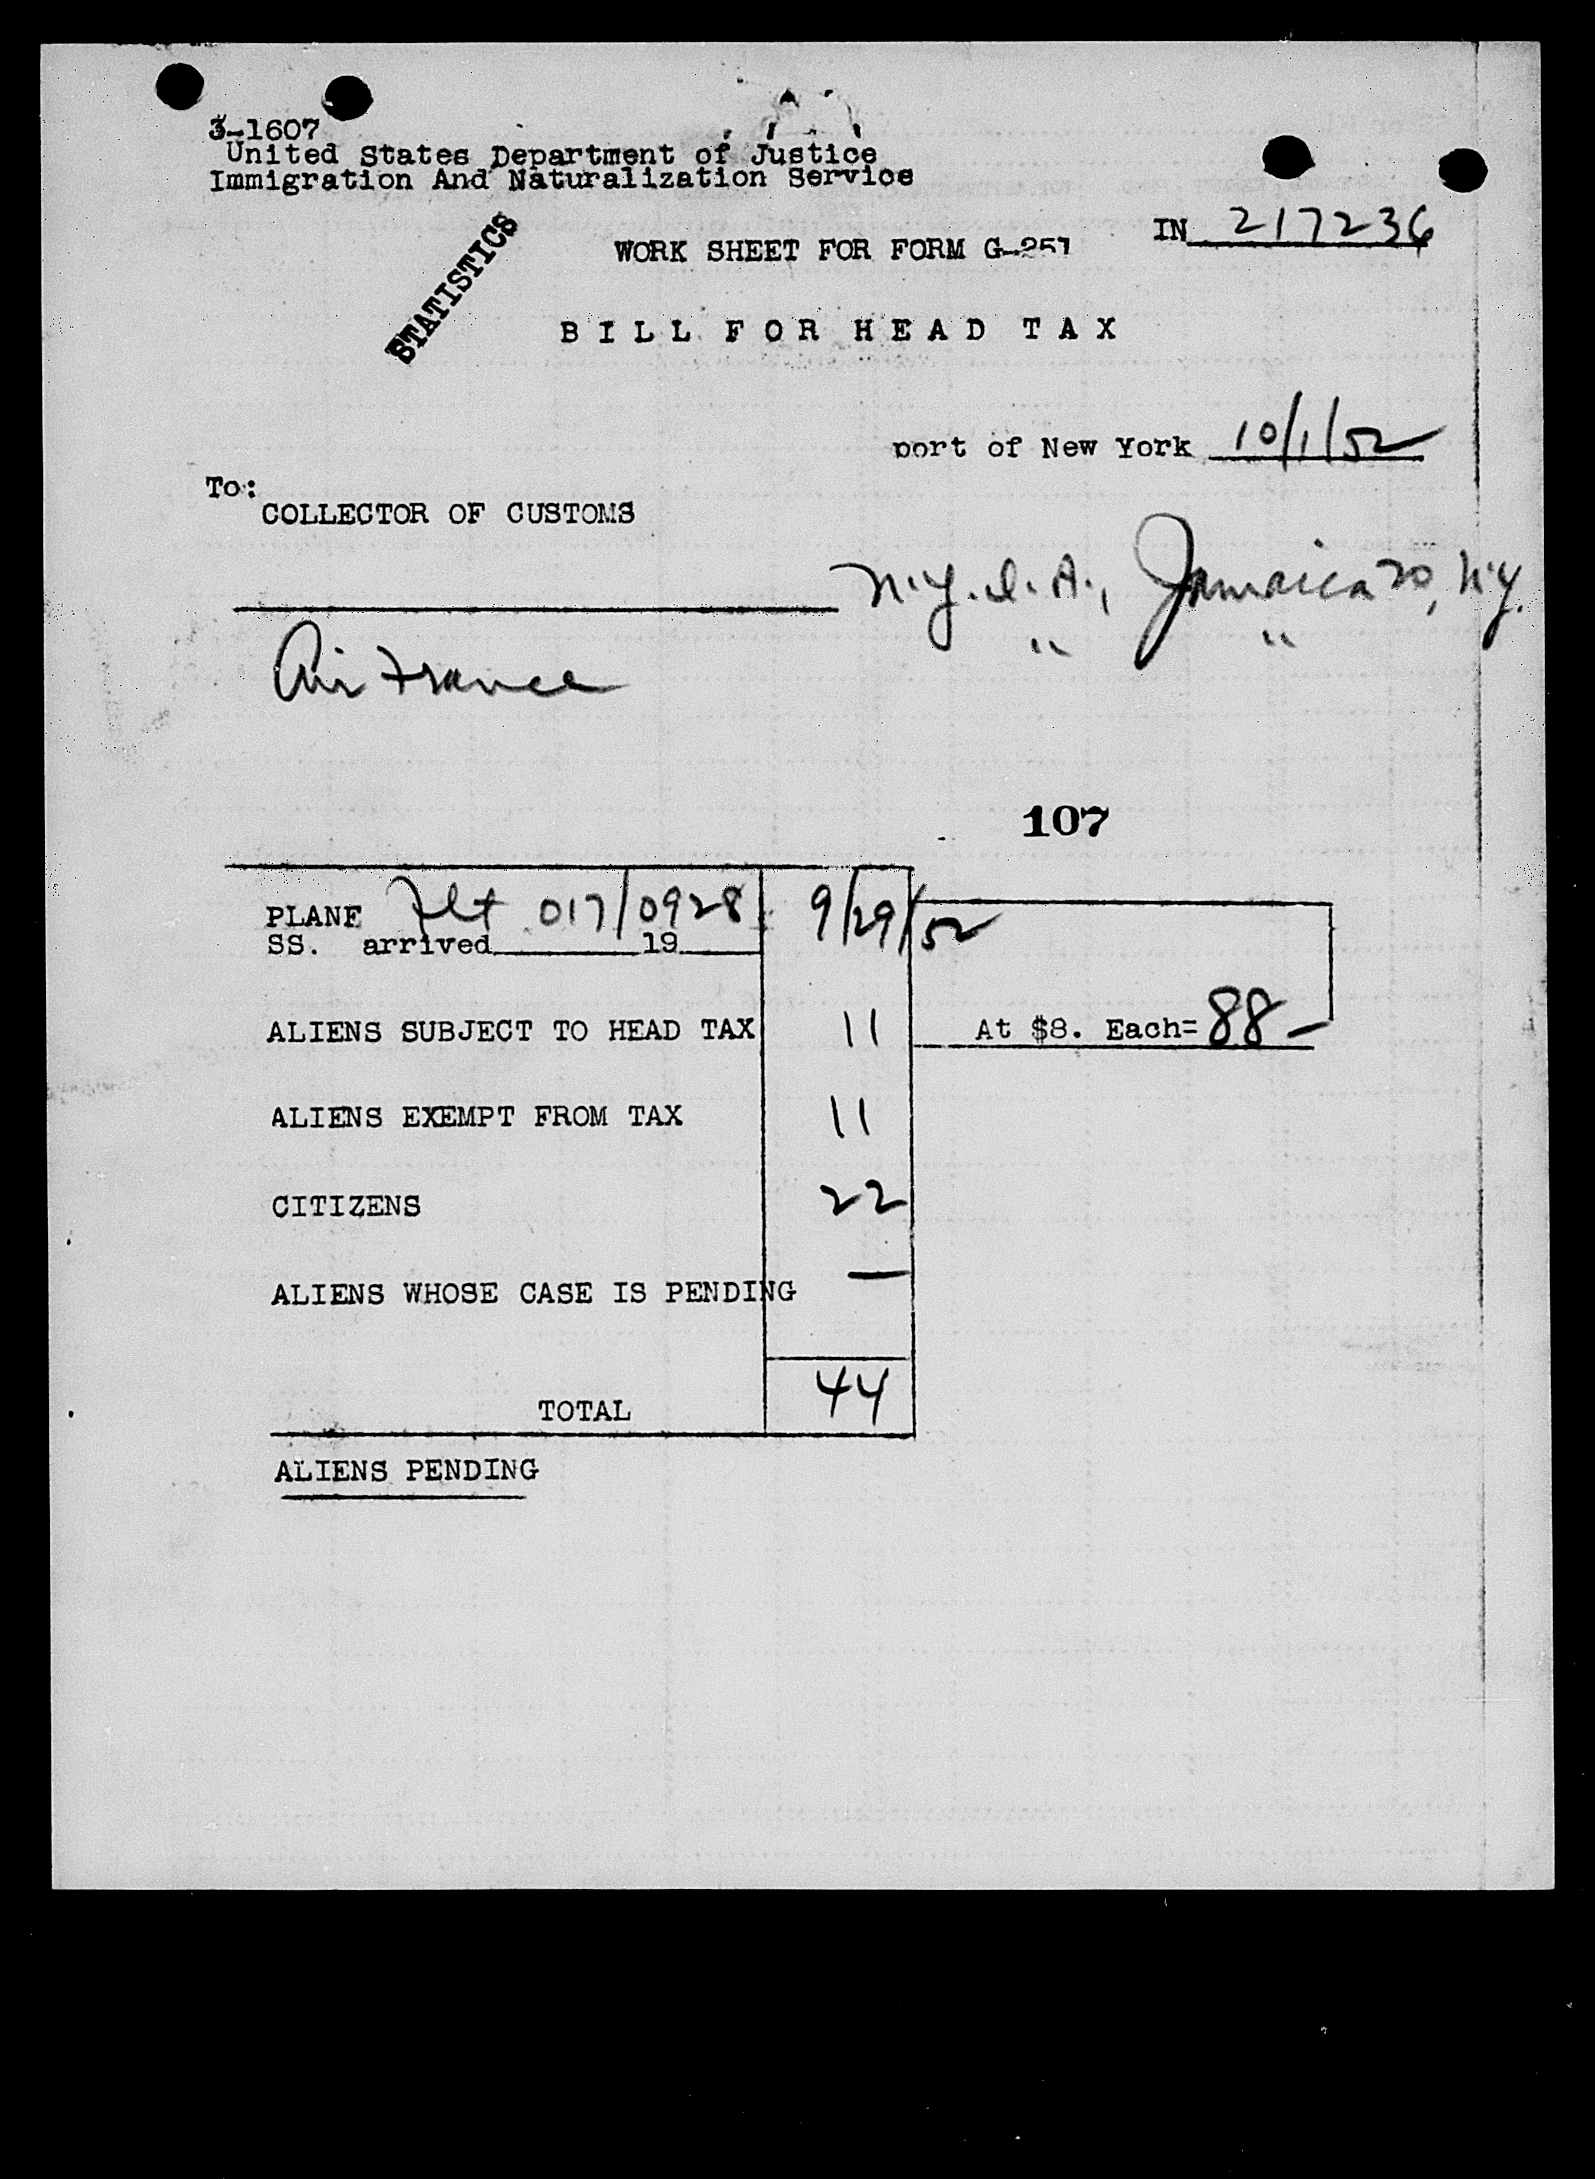 3-1607
United States Department of Justice
Immigration And Naturalization Service
STATISTICS
IN 217236
WORK SHEET FOR FORM G-257
BILL FOR HEAD TAX
port of New York 10/1/52
To:
COLLECTOR OF CUSTOMS
N.Y.I.A., Jamaica 30, N.Y.
Air France " "
107
PLANE Flt 017/0928 9/29/52
SS. arrived 19
ALIENS SUBJECT TO HEAD TAX 11 At $8. Each= 88 —
ALIENS EXEMPT FROM TAX 11
CITIZENS 22
ALIENS WHOSE CASE IS PENDING —
TOTAL 44
ALIENS PENDING